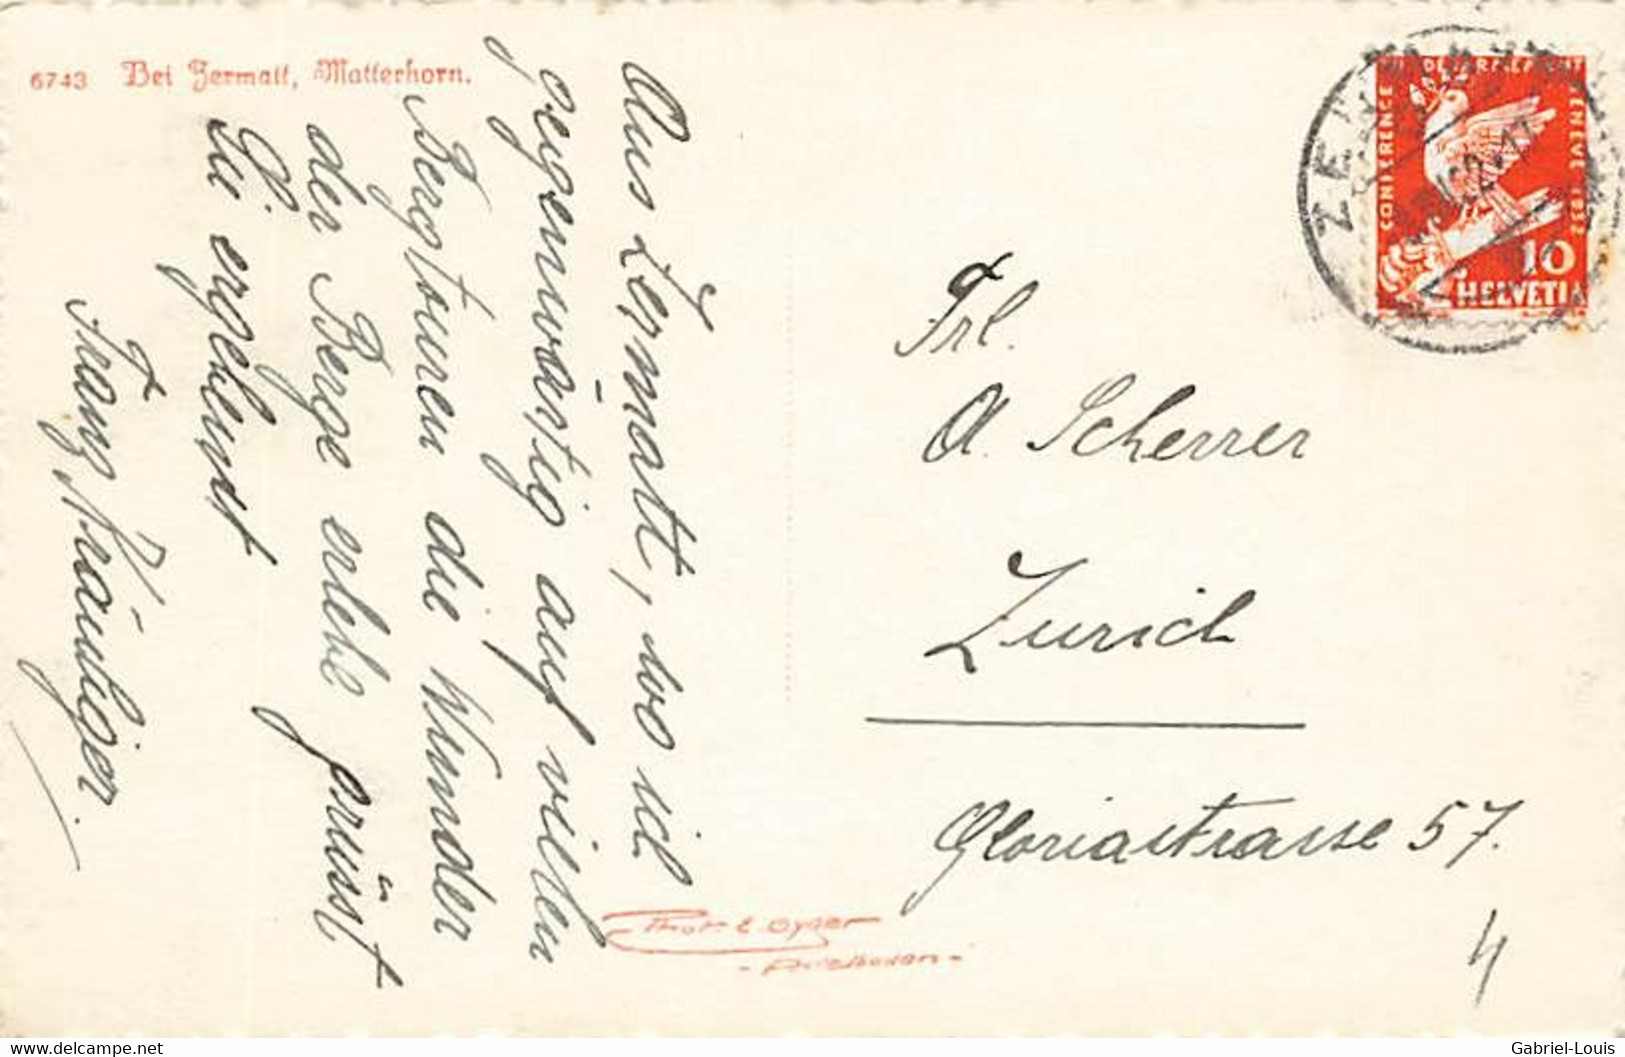 6743 Bei Zermatt, Matterhorn.
Aus Zermatt, wo ich
gegenwärtig auf vielen
Bergtouren die Wunder
der Berge erlebe grüsst
Sie ergebenst
Franz
Frl.
A. Scherrer
Zürich
Gloriastrasse 57.
4
Phot. E. Gyger
- Adelboden -
CONFERENCE
GENEVE 1932
10
HELVETIA
delcampe.net
Gabriel-Louis